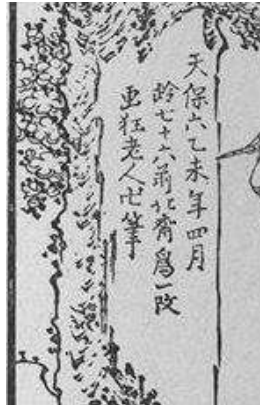 天保六乙未年四月
齢七十六前北斎為一改
画狂老人卍筆